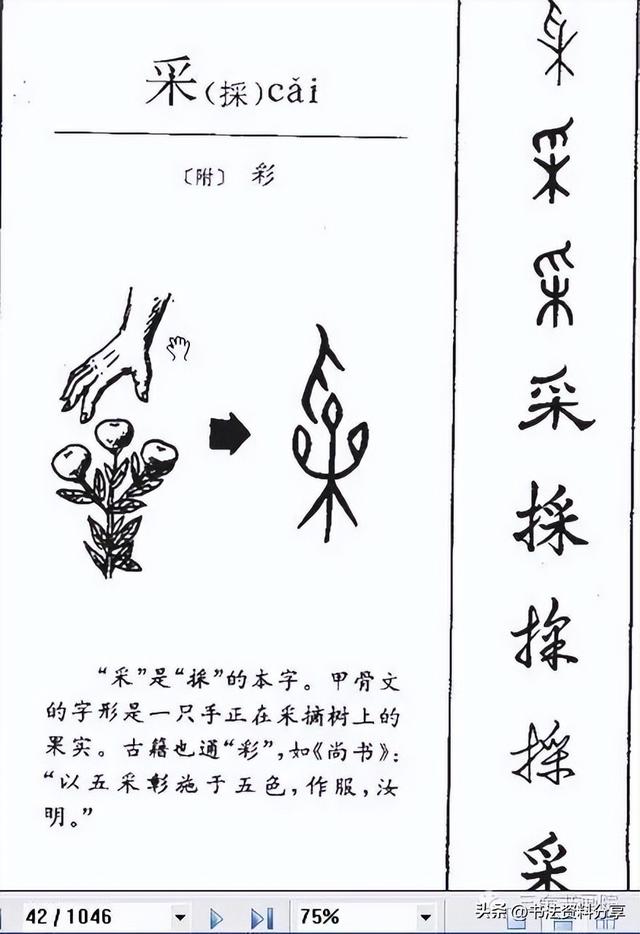 采(採)cǎi
〔附〕 彩
“采”是“採”的本字。甲骨文
的字形是一只手正在采摘树上的
果实。古籍也通“彩”,如《尚书》:
“以五采彰施于五色,作服,汝
明。”
采
采
采
采
採
採
採
采
42 / 1046
75%
头条 @书法资料分享